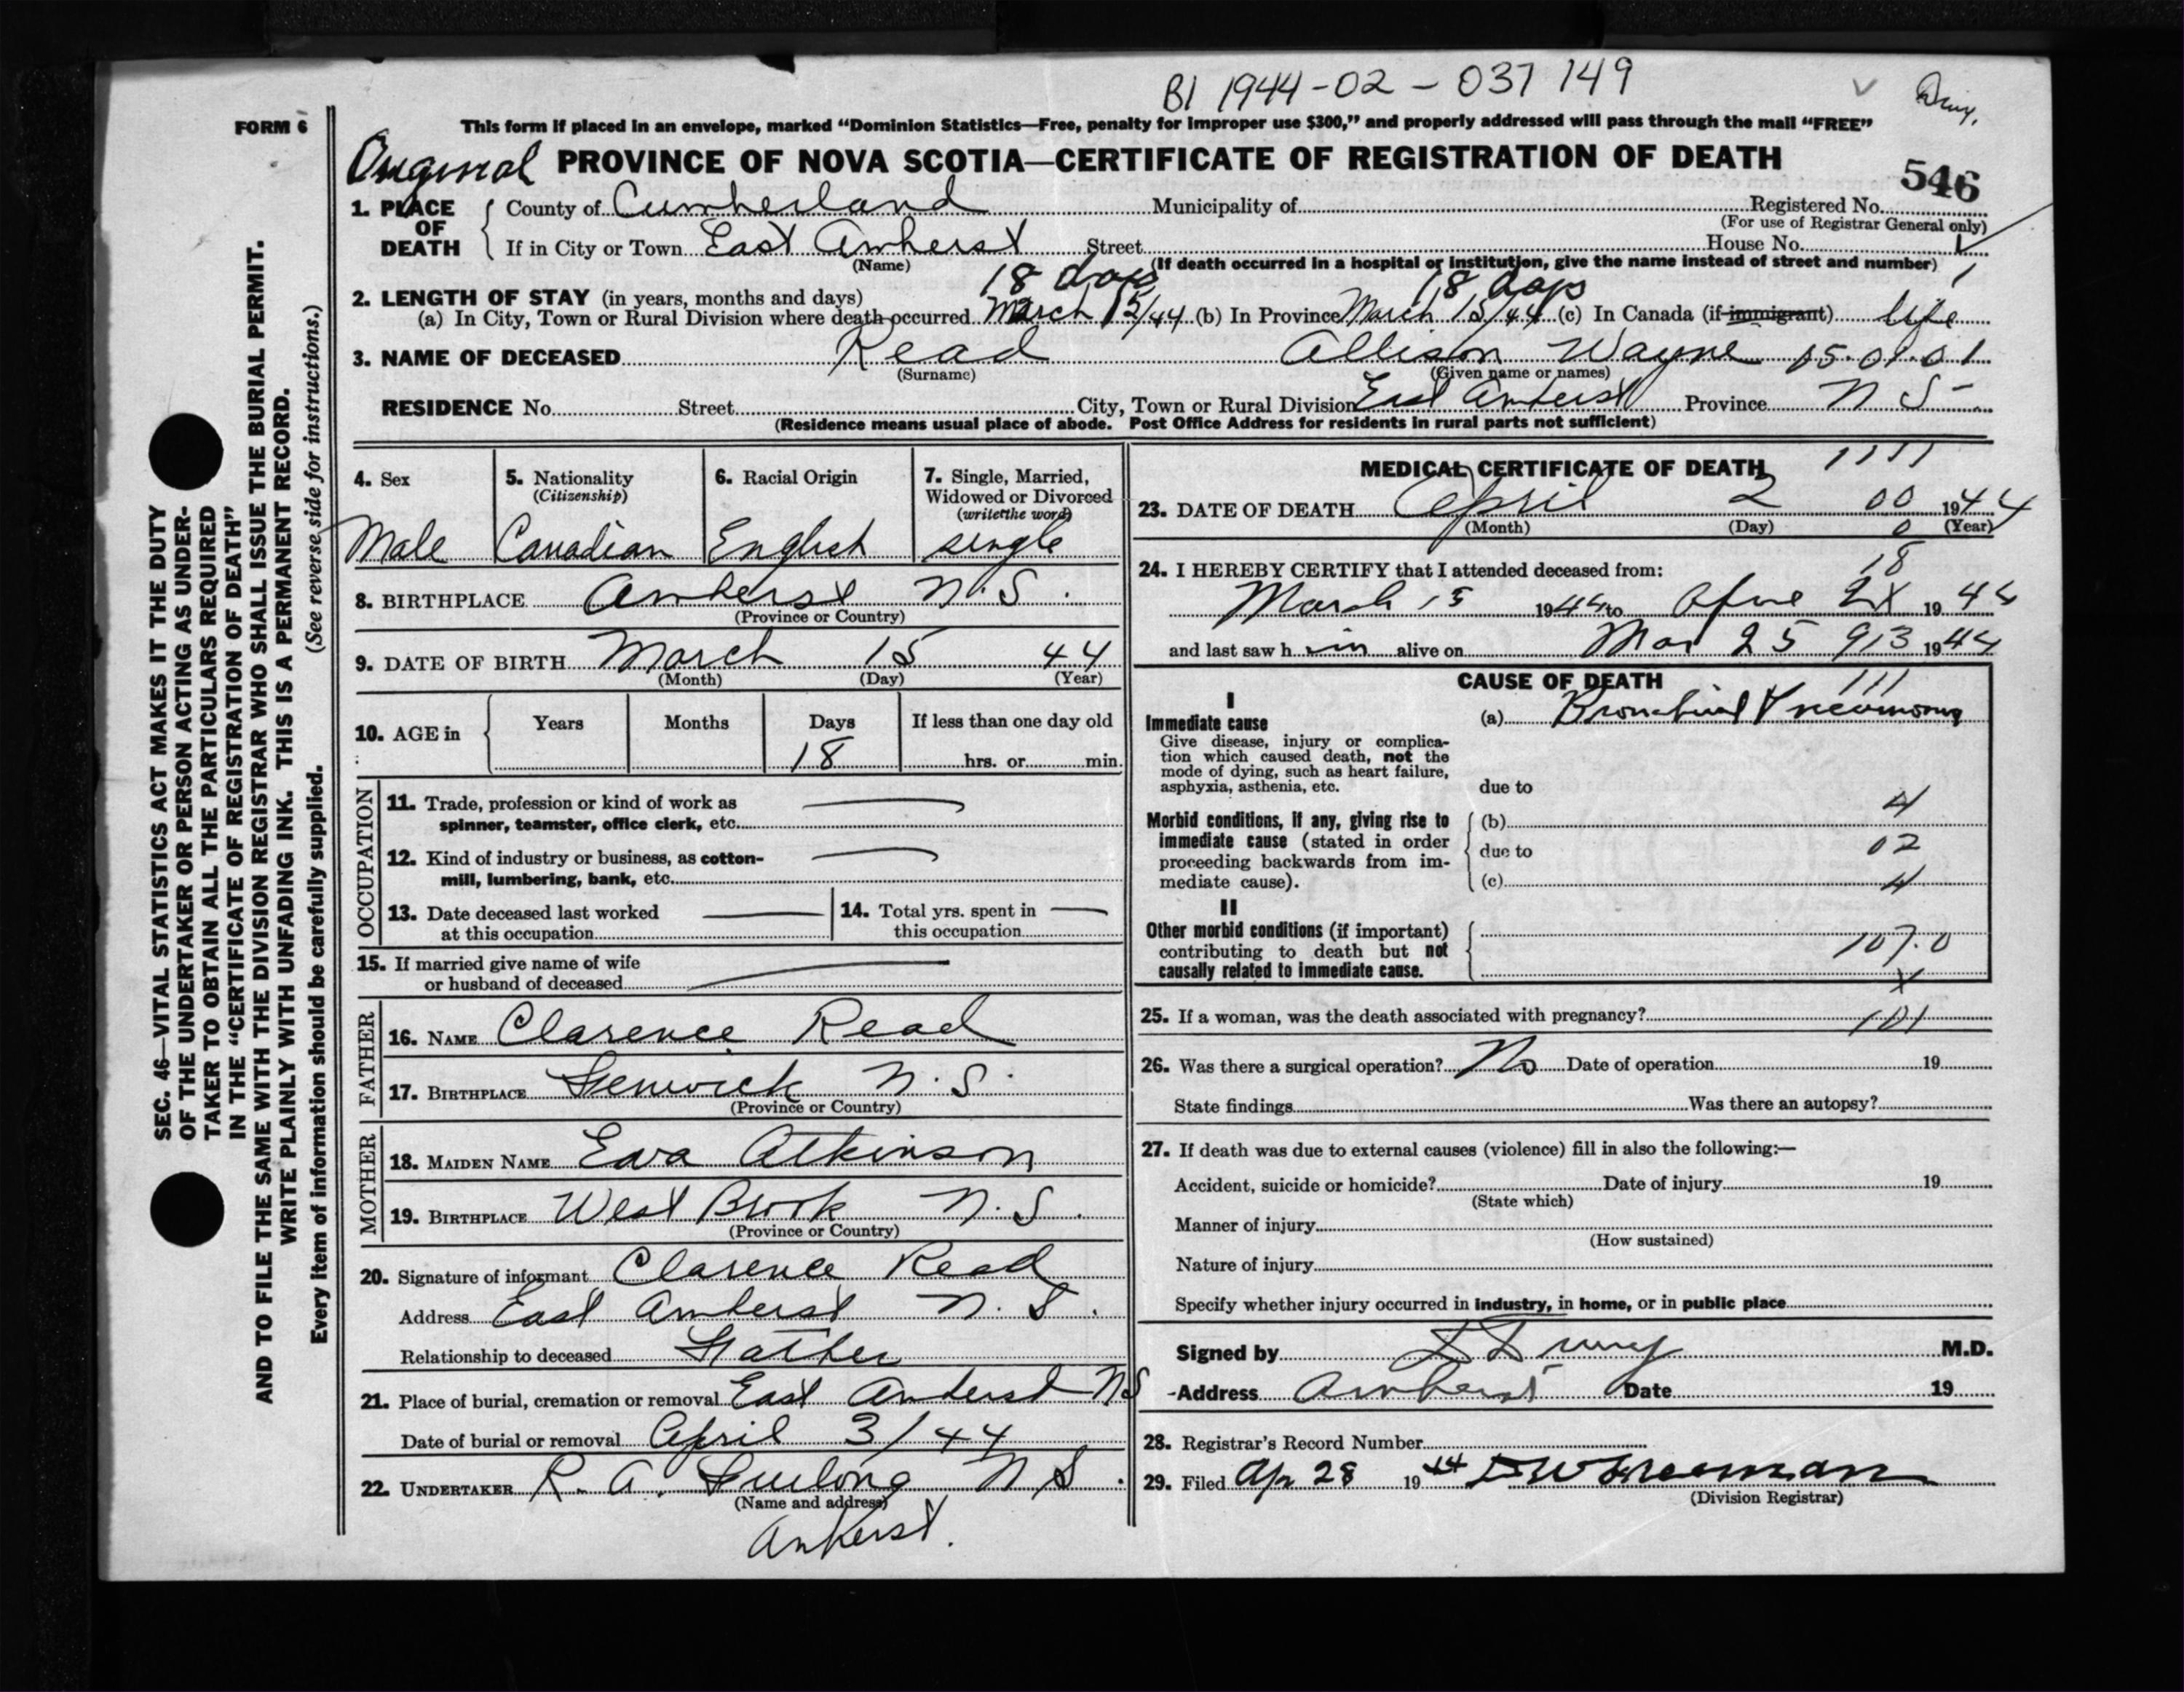 BI 1944-02-037149
FORM 6
This form if placed in an envelope, marked “Dominion Statistics—Free, penalty for improper use $300,” and properly addressed will pass through the mail “FREE”
Original PROVINCE OF NOVA SCOTIA—CERTIFICATE OF REGISTRATION OF DEATH
546
1. PLACE OF DEATH { County of Cumberland Municipality of Registered No.
(For use of Registrar General only)
If in City or Town East Amherst Street House No.
(Name) (If death occurred in a hospital or institution, give the name instead of street and number)
18 days 18 days
2. LENGTH OF STAY (in years, months and days)
(a) In City, Town or Rural Division where death occurred March 15/44 (b) In Province March 15/44 (c) In Canada (if immigrant) life
3. NAME OF DECEASED Read Allison Wayne 05.01.01
(Surname) (Given name or names)
RESIDENCE No. Street City, Town or Rural Division East Amherst Province N S
(Residence means usual place of abode. Post Office Address for residents in rural parts not sufficient)
4. Sex 5. Nationality (Citizenship) 6. Racial Origin 7. Single, Married, Widowed or Divorced (write the word)
Male Canadian English single
8. BIRTHPLACE Amherst N.S.
(Province or Country)
9. DATE OF BIRTH March 15 44
(Month) (Day) (Year)
10. AGE in { Years Months Days If less than one day old
18 hrs. or min.
OCCUPATION
11. Trade, profession or kind of work as
spinner, teamster, office clerk, etc.
12. Kind of industry or business, as cotton-
mill, lumbering, bank, etc.
13. Date deceased last worked at this occupation
14. Total yrs. spent in this occupation
15. If married give name of wife
or husband of deceased
FATHER
16. NAME Clarence Read
17. BIRTHPLACE Fenwick N.S.
(Province or Country)
MOTHER
18. MAIDEN NAME Eva Atkinson
19. BIRTHPLACE West Brook N.S.
(Province or Country)
20. Signature of informant Clarence Read
Address East Amherst N.S.
Relationship to deceased Father
21. Place of burial, cremation or removal East Amherst NS
Date of burial or removal April 3/44
22. UNDERTAKER R. A. Furlong N S.
(Name and address)
Amherst.
MEDICAL CERTIFICATE OF DEATH 1111
23. DATE OF DEATH April 2 00 1944
(Month) (Day) 0 (Year)
24. I HEREBY CERTIFY that I attended deceased from: 18
March 15 1944 to 2X 1944
and last saw h im alive on Mar 25 913 1944
CAUSE OF DEATH 111
I
Immediate cause (a) Bronchial Pneumonia
Give disease, injury or complica-
tion which caused death, not the
mode of dying, such as heart failure,
asphyxia, asthenia, etc. due to
4
Morbid conditions, if any, giving rise to { (b)
immediate cause (stated in order due to 02
proceeding backwards from im-
mediate cause). (c) 4
II
Other morbid conditions (if important)
contributing to death but not 107.0
causally related to immediate cause. X
25. If a woman, was the death associated with pregnancy? 101
26. Was there a surgical operation? No Date of operation 19
State findings Was there an autopsy?
27. If death was due to external causes (violence) fill in also the following:—
Accident, suicide or homicide? Date of injury 19
(State which)
Manner of injury
(How sustained)
Nature of injury
Specify whether injury occurred in industry, in home, or in public place
Signed by M.D.
Address Amherst Date 19
28. Registrar's Record Number
29. Filed Apr 28 1944 Freeman
(Division Registrar)
SEC. 46—VITAL STATISTICS ACT MAKES IT THE DUTY
OF THE UNDERTAKER OR PERSON ACTING AS UNDER-
TAKER TO OBTAIN ALL THE PARTICULARS REQUIRED
IN THE “CERTIFICATE OF REGISTRATION OF DEATH”
AND TO FILE THE SAME WITH THE DIVISION REGISTRAR WHO SHALL ISSUE THE BURIAL PERMIT.
WRITE PLAINLY WITH UNFADING INK. THIS IS A PERMANENT RECORD.
Every item of information should be carefully supplied. (See reverse side for instructions.)